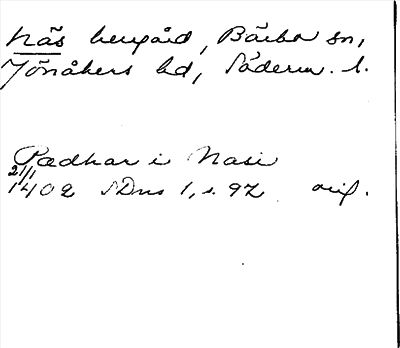 Näs herrgård, Bärbo sn,
Jönåkers hd, Söderm. l.
Pædhar i Nasi
21/1
1402 SDns 1, s. 92 orig.